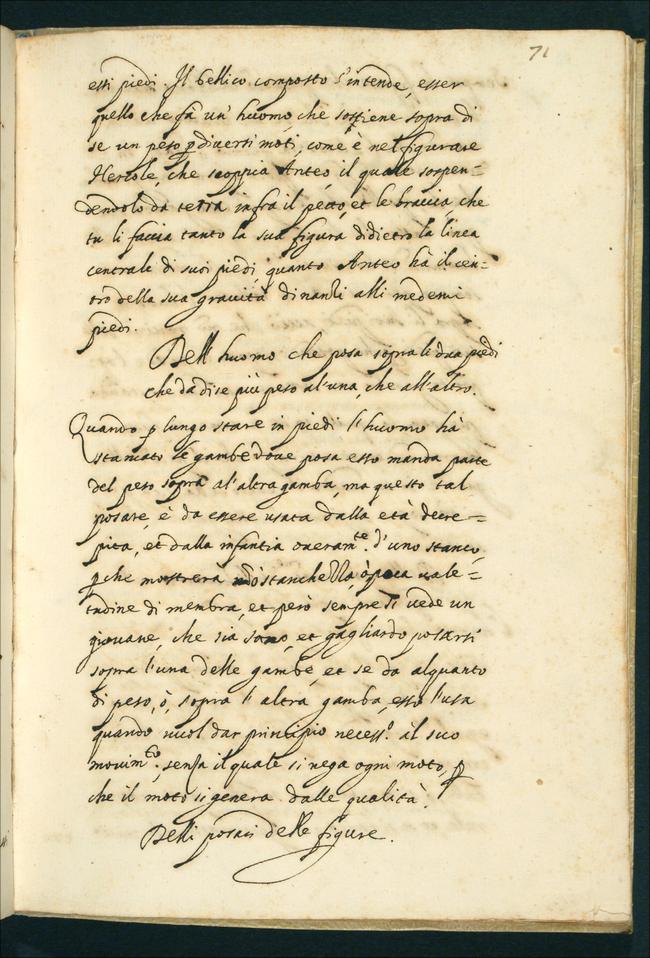 71
essi piedi. Il bellico composto s'intende, esser
quello che fà un' huomo, che sostiene sopra di
se un peso p diversi moti, come è nel figurare
Hercole, che scoppia Anteo, il quale sospen=
dendolo da terra infra il petto, et le braccia, che
tu li faccia tanto la sua figura didietro la linea
centrale di suoi piedi, quanto Anteo hà il cen=
tro della sua gravità dinanzi alli medemi
piedi.
Dell huomo che posa sopra li dua piedi
che da di se più peso al'una, che all'altro.
Quando p lungo stare in piedi l'huomo hà
stancato le gambe dove posa esso manda parte
del peso sopra al'altra gamba, ma questo tal
posare, è da essere usata dalla età decre=
pita, et dalla infantia overamte. d'uno stanco,
pche mostrera stanchezza, ò poca vale=
tudine di membra, et però sempre si vede un
giovane, che sia sano, et gagliardo posarsi
sopra l'una delle gambe, et se da alquanto
di peso, ò, sopra l'altra gamba, esso l'usa
quando vuol dar principio necesso. al suo
movimto., senza il quale si nega ogni moto, p
che il moto si genera dalle qualità.
Delli posari delle figure.